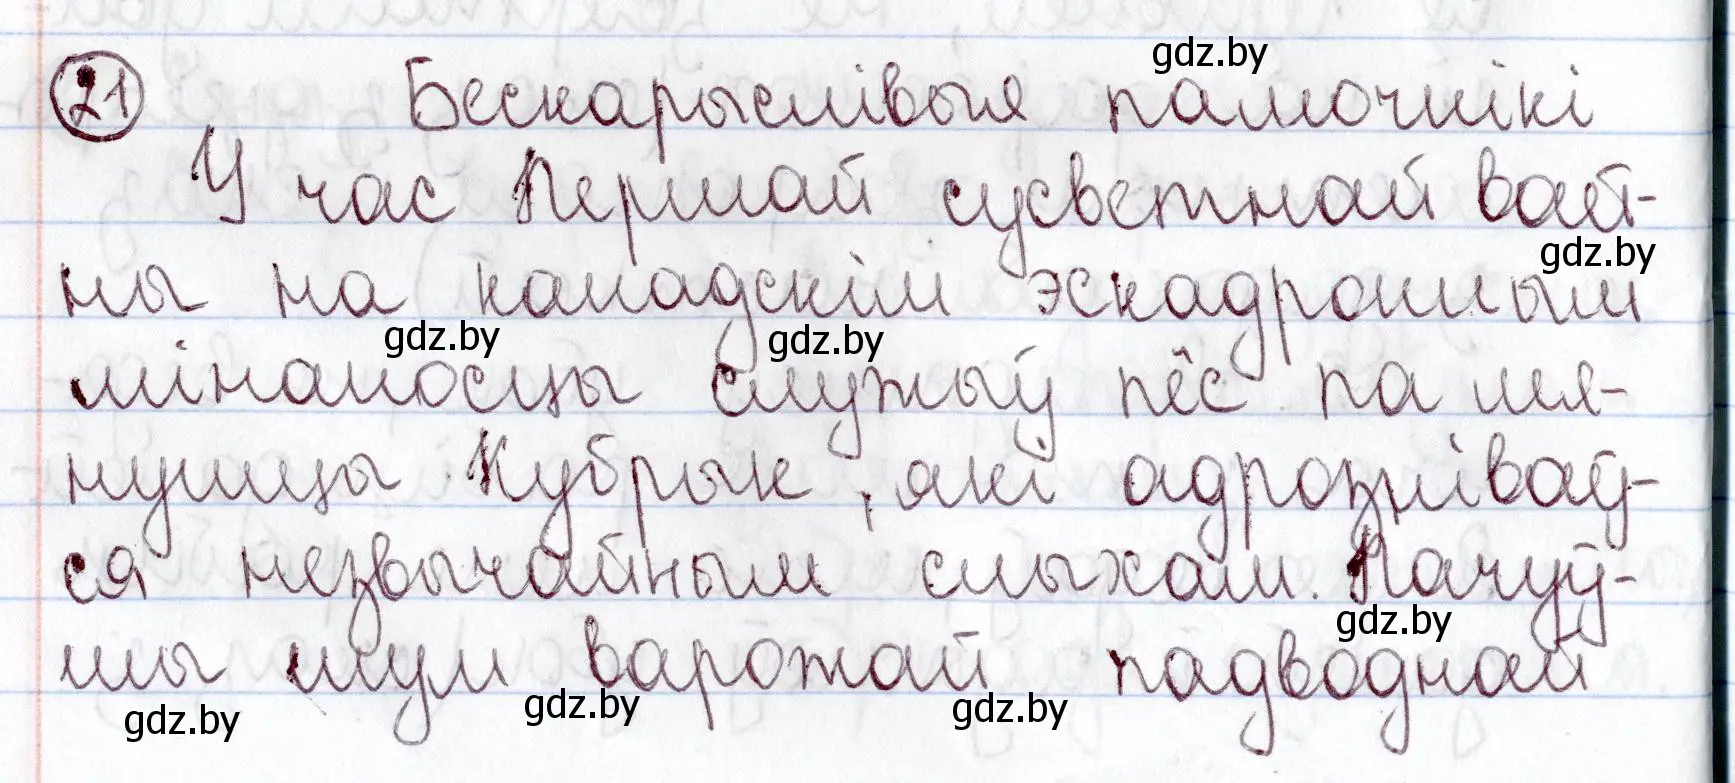 21 Бескарыслівыя памочнікі
gdz.by
У час Першай сусветнай вай-
gdz.by
ны на канадскім эскадронным
gdz.by gdz.by
мінаносцы служыў пёс па мя-
нушцы Кубрык, які адрозніваў-
ся незвычайным слыхам. Пачуў-
gdz.by
шы шум варожай падводнай
gdz.by gdz.by gdz.by